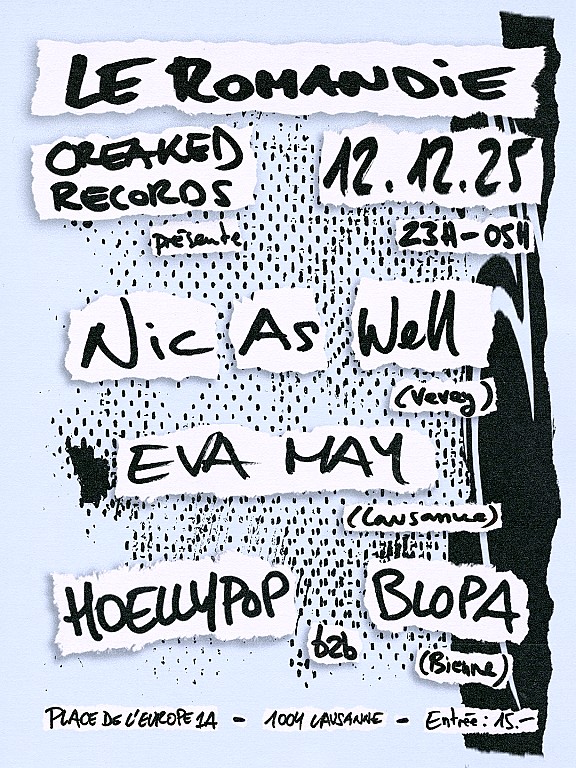 LE ROMANDiE
CREAKED
RECORDS
présente
12.12.25
23H-05H
Nic As Well
(Vevey)
EVA MAY
(Lausanne)
HOELLYPOP
b2b
BLOPA
(Bienne)
PLACE DE L'EUROPE 1A - 1004 LAUSANNE - Entrée: 15.-